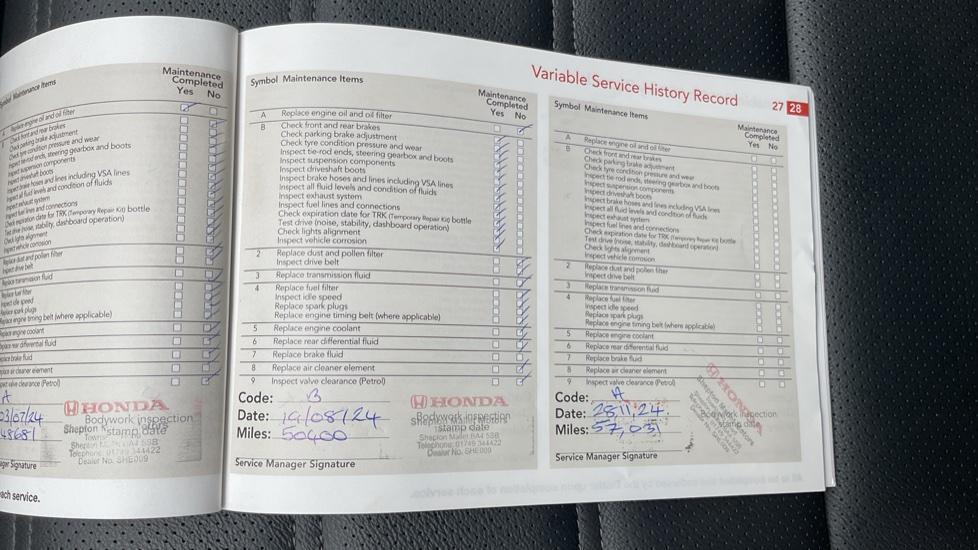 Maintenance
Completed
Yes No
Replace engine oil and oil filter
Check front and rear brakes
Check parking brake adjustment
Check tyre condition pressure and wear
Inspect tie-rod ends, steering gearbox and boots
Inspect suspension components
Inspect driveshaft boots
brake hoses and lines including VSA lines
all fluid levels and condition of fluids
exhaust system
fuel lines and connections
expiration date for TRK (Temporary Repair Kit) bottle
drive (noise, stability, dashboard operation)
lights alignment
vehicle corrosion
dust and pollen filter
drive belt
transmission fluid
fuel filter
idle speed
spark plugs
engine timing belt (where applicable)
engine coolant
rear differential fluid
brake fluid
air cleaner element
valve clearance (Petrol)
A
03/07/24
48681
HONDA
Bodywork inspection
stamp date
Shepton
Telephone: 01749 344422
Dealer No. SHE009
Signature
each service.
Symbol Maintenance Items
Maintenance
Completed
Yes No
A Replace engine oil and oil filter
B Check front and rear brakes
Check parking brake adjustment
Check tyre condition pressure and wear
Inspect tie-rod ends, steering gearbox and boots
Inspect suspension components
Inspect driveshaft boots
Inspect brake hoses and lines including VSA lines
Inspect all fluid levels and condition of fluids
Inspect exhaust system
Inspect fuel lines and connections
Check expiration date for TRK (Temporary Repair Kit) bottle
Test drive (noise, stability, dashboard operation)
Check lights alignment
Inspect vehicle corrosion
2 Replace dust and pollen filter
Inspect drive belt
3 Replace transmission fluid
4 Replace fuel filter
Inspect idle speed
Replace spark plugs
Replace engine timing belt (where applicable)
5 Replace engine coolant
6 Replace rear differential fluid
7 Replace brake fluid
8 Replace air cleaner element
9 Inspect valve clearance (Petrol)
Code: B
Date: 19/08/24
Miles: 50400
HONDA
Bodywork inspection
Shepton Mallet Motors
stamp date
Shepton Mallet BA4 5SB
Telephone: 01749 344422
Dealer No. SHE009
Service Manager Signature
Variable Service History Record 27 28
Symbol Maintenance Items
Maintenance
Completed
Yes No
A Replace engine oil and oil filter
B Check front and rear brakes
Check parking brake adjustment
Check tyre condition pressure and wear
Inspect tie-rod ends, steering gearbox and boots
Inspect suspension components
Inspect driveshaft boots
Inspect brake hoses and lines including VSA lines
Inspect all fluid levels and condition of fluids
Inspect exhaust system
Inspect fuel lines and connections
Check expiration date for TRK (Temporary Repair Kit) bottle
Test drive (noise, stability, dashboard operation)
Check lights alignment
Inspect vehicle corrosion
2 Replace dust and pollen filter
Inspect drive belt
3 Replace transmission fluid
4 Replace fuel filter
Inspect idle speed
Replace spark plugs
Replace engine timing belt (where applicable)
5 Replace engine coolant
6 Replace rear differential fluid
7 Replace brake fluid
8 Replace air cleaner element
9 Inspect valve clearance (Petrol)
Code: A
Date: 28,11,24
Miles: 57,031
HONDA
Bodywork inspection
stamp date
Service Manager Signature